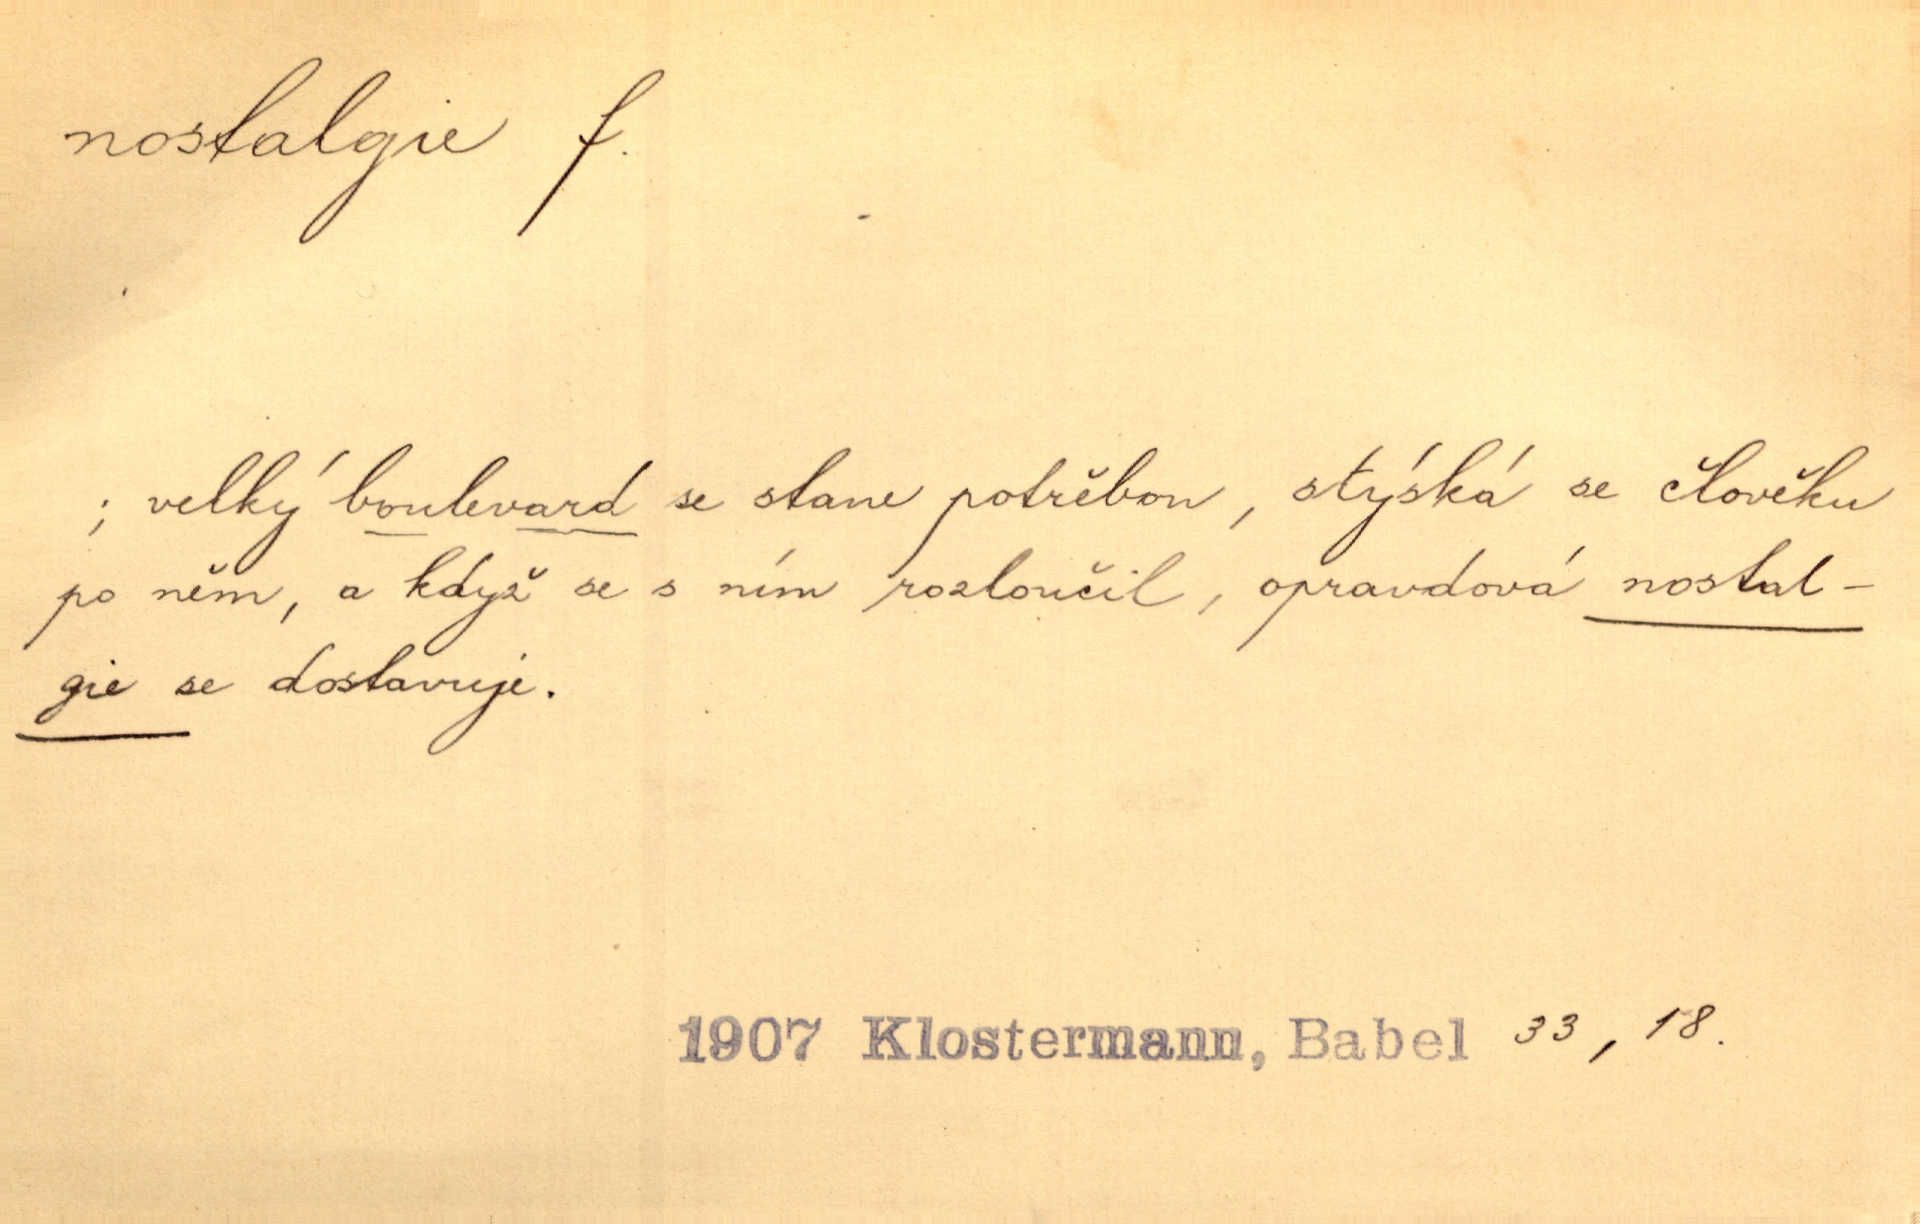 nostalgie f.
; velký boulevard se stane potřebou, stýská se člověku
po něm, a když se s ním rozloučil, opravdová nostal-
gie se dostavuje.
1907 Klostermann, Babel 33, 18.